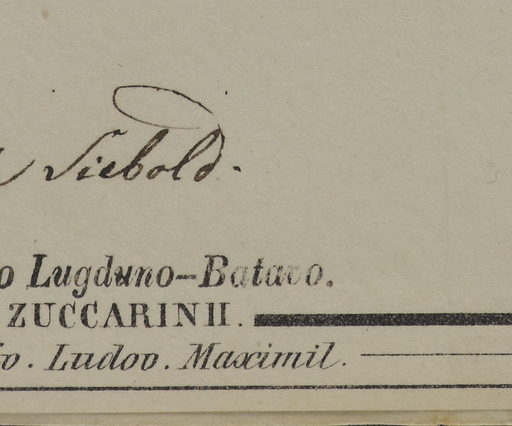 Siebold.
o Lugduno-Batavo.
ZUCCARINII.
v. Ludov. Maximil.